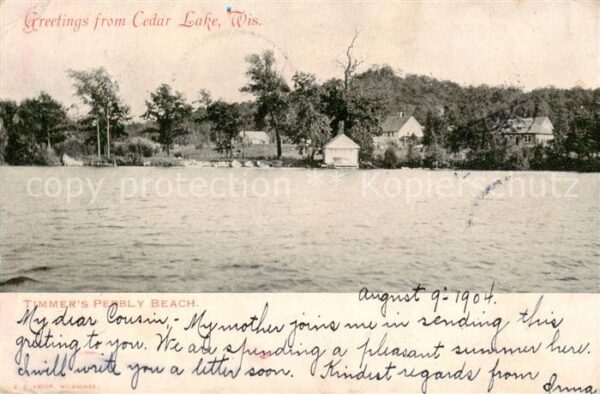 Greetings from Cedar Lake, Wis.
copy protection Kopierschutz
TIMMER'S PEBBLY BEACH.
August 9th 1904.
My dear Cousin,- My mother joins me in sending this
greeting to you. We are spending a pleasant summer here.
I will write you a letter soon. Kindest regards from
Irma
E. C. KROPP, MILWAUKEE.